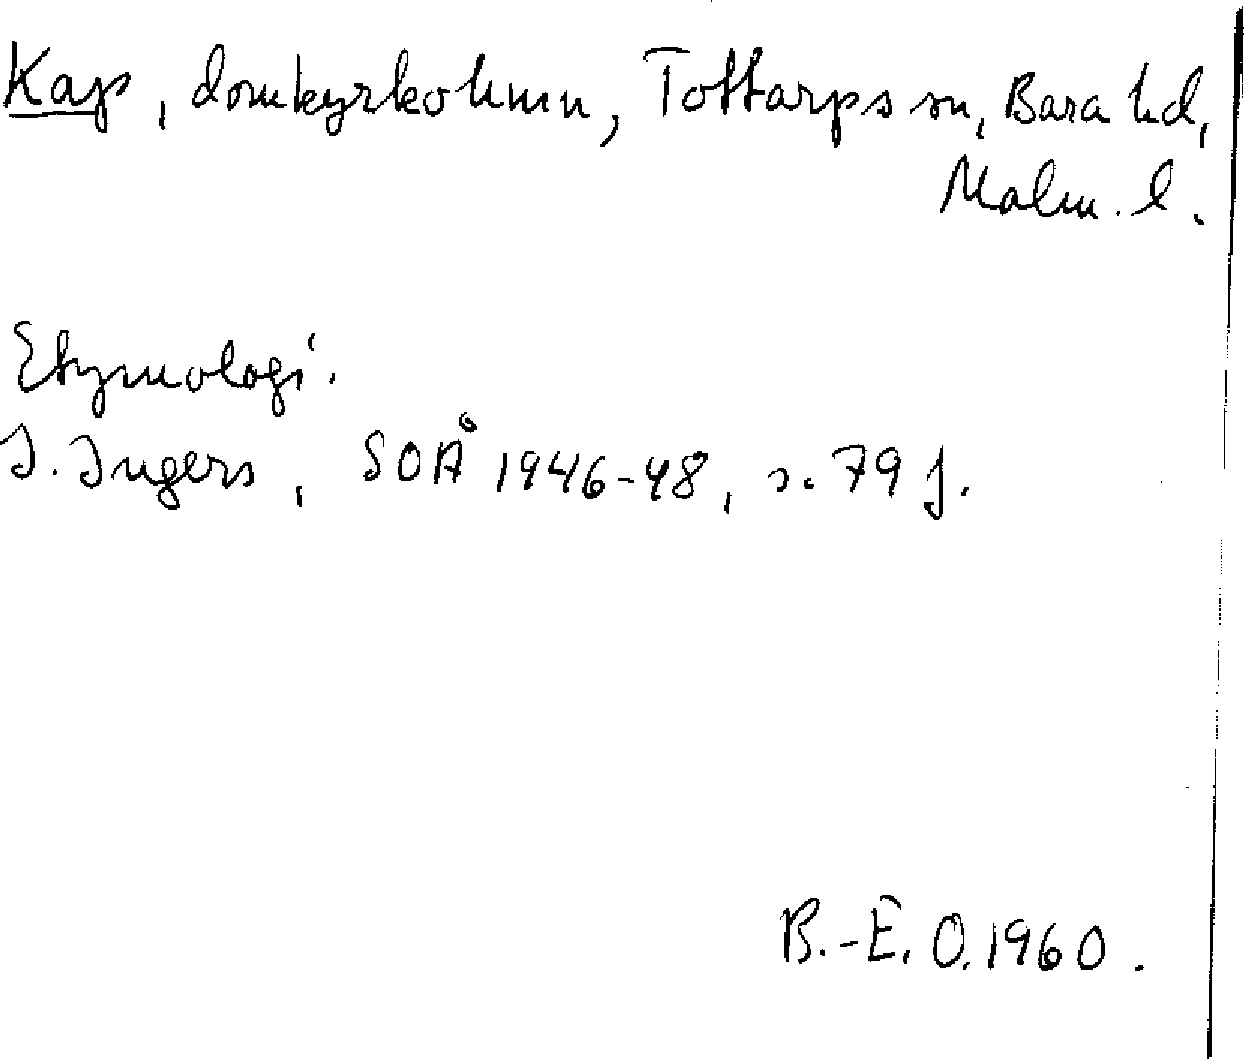 Kap, domkyrkohmn, Tottarps sn, Bara hd,
Malm. l.
Etymologi.
I. Ingers, SOÅ 1946-48, s. 79 f.
B.-E. O. 1960.